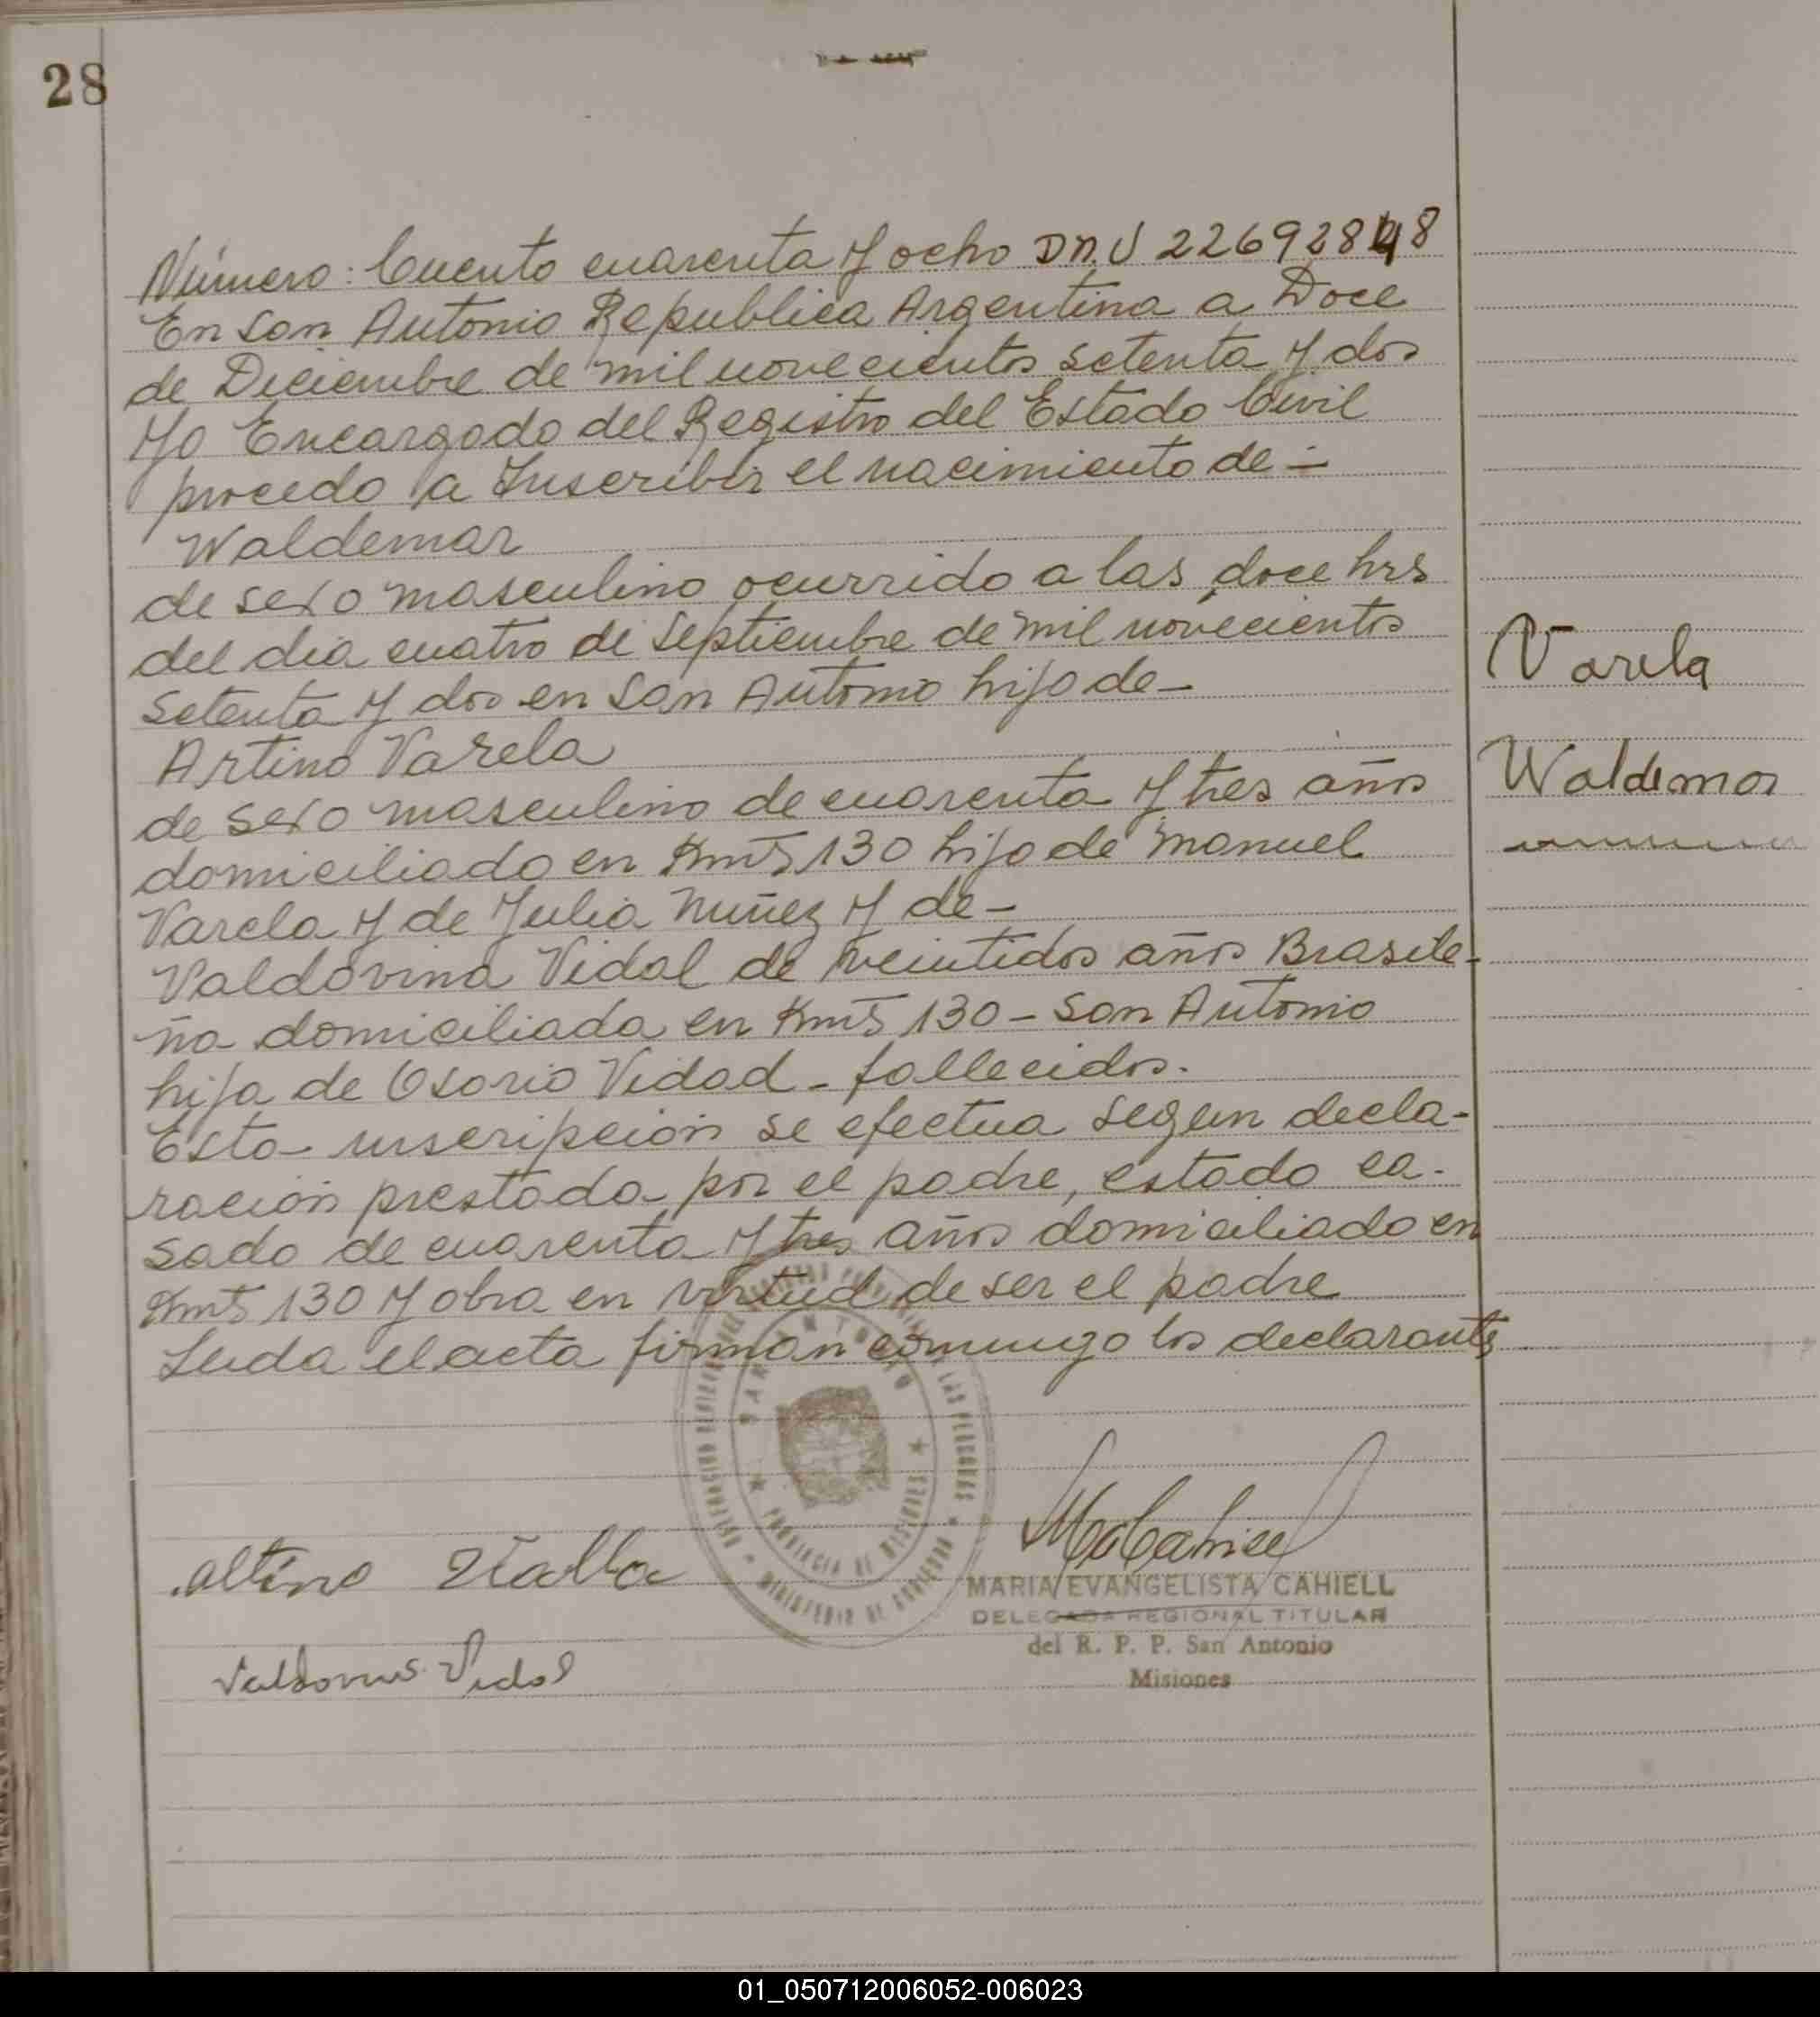 28
Número: Ciento cuarenta y ocho DN.U 22692848
En San Antonio Republica Argentina a Doce
de Diciembre de mil novecientos setenta y dos
Yo Encargado del Registro del Estado Civil
procedo a Inscribir el nacimiento de -
Waldemar
de sexo masculino ocurrido a las doce hrs
del dia cuatro de Septiembre de mil novecientos
Setenta y dos en San Antonio hijo de -
Varela
Artino Varela
de sexo masculino de cuarenta y tres años
Waldemar
domiciliado en Kmts 130 hijo de Manuel
Varela y de Julia Nuñez y de -
Valdovina Vidal de veintidos años Brasile-
ña domiciliada en Kmts 130 - San Antonio
hija de Osorio Vidad - fallecidos.
Esta inscripción se efectua segun decla-
ración prestada por el padre, estado ca-
sado de cuarenta y tres años domiciliado en
Kmts 130 y obra en virtud de ser el padre
Leida el acta firman conmigo los declarantes
SAN ANTONIO
PROVINCIA DE MISIONES
MINISTERIO DE GOBIERNO
LAS PERSONAS
MARIA EVANGELISTA CAHIELL
DELEGADA REGIONAL TITULAR
del R. P. P. San Antonio
Misiones
altino
Vidal
01_050712006052-006023